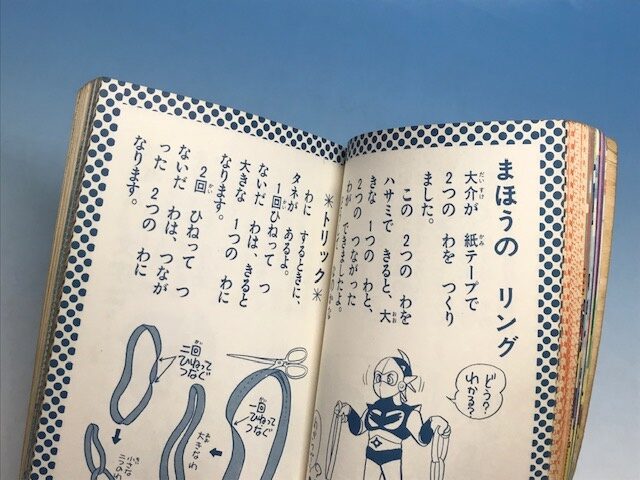 まほうの リング
大介が 紙テープで
2つの わを つくり
ました。
この 2つの わを
ハサミで きると、大
きな 1つの わと、
2つの つながった
わが できましたよ。
どう?
わかる?
＊トリック＊
わに するときに、
タネが あるよ。
1回ひねって つ
ないだ わは、きると
大きな 1つの わに
なります。
2回 ひねって つ
ないだ わは、つなが
った 2つの わに
なります。
一回
ひねって
つなぐ
大きなわ
二回
ひねって
つなぐ
小さな
二つのわ